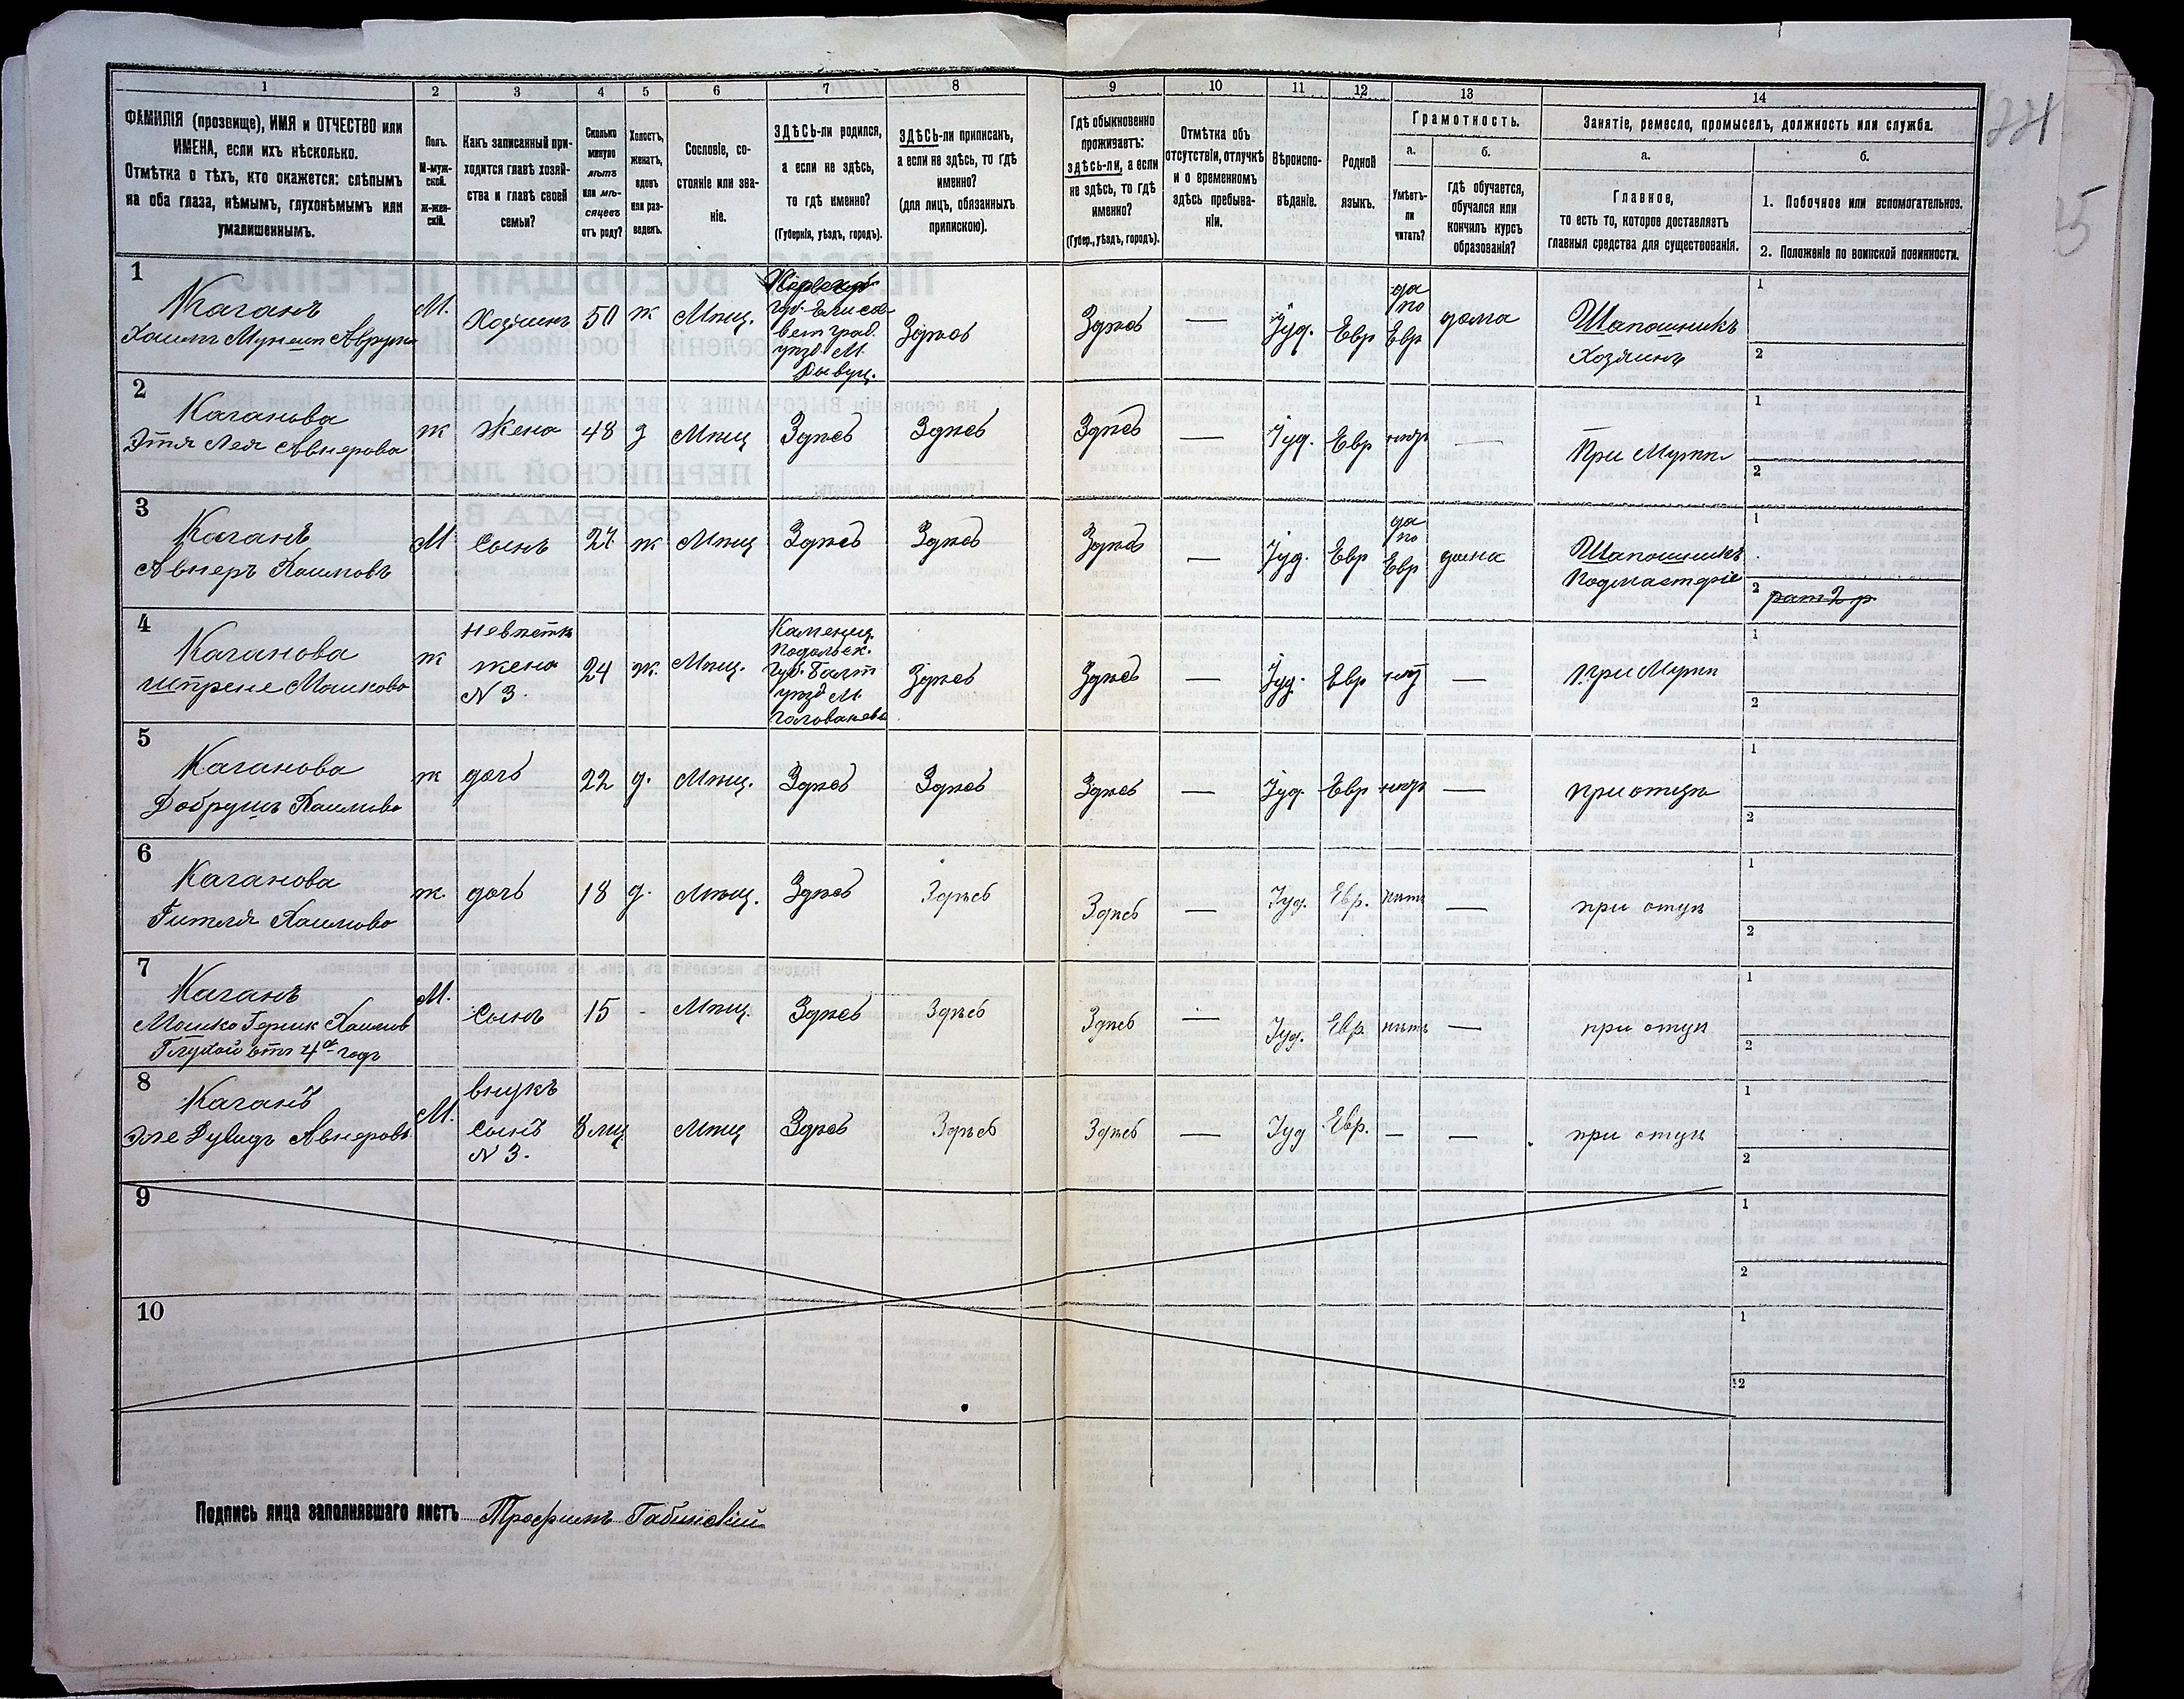 1 2 3 4 5 6 7 8 9 10 11 12 13 14
ФАМИЛІЯ (прозвище), ИМЯ и ОТЧЕСТВО или
ИМЕНА, если ихъ нѣсколько.
Отмѣтка о тѣхъ, кто окажется: слѣпымъ
на оба глаза, нѣмымъ, глухонѣмымъ или
умалишеннымъ.
Полъ.
М-муж-
ской.
Ж-жен-
скій.
Какъ записанный при-
ходится главѣ хозяй-
ства и главѣ своей
семьи?
Сколько
минуло
лѣтъ
или мѣ-
сяцевъ
отъ роду?
Холостъ,
женатъ,
вдовъ
или раз-
веденъ.
Сословіе, со-
стояніе или зва-
ніе.
ЗДѢСЬ-ли родился,
а если не здѣсь,
то гдѣ именно?
(Губернія, уѣздъ, городъ).
ЗДѢСЬ-ли приписанъ,
а если не здѣсь, то гдѣ
именно?
(для лицъ, обязанныхъ
припискою).
Гдѣ обыкновенно
проживаетъ:
здѣсь-ли, а если
не здѣсь, то гдѣ
именно?
(Губер., уѣздъ, городъ).
Отмѣтка объ
отсутствіи, отлучкѣ
и о временномъ
здѣсь пребыва-
ніи.
Вѣроиспо-
вѣданіе.
Родной
языкъ.
Грамотность.
а.
Умѣетъ-
ли
читать?
б.
гдѣ обучается,
обучался или
кончилъ курсъ
образованія?
Занятіе, ремесло, промыселъ, должность или служба.
а.
Главное,
то есть то, которое доставляетъ
главныя средства для существованія.
б.
1. Побочное или вспомогательное.
2. Положеніе по воинской повинности.
1
Каганъ
Хаимъ
М.
Хозяинъ
50
ж
Мѣщ.
Херсонс
губ. Елиса
ветград.
уѣзд. М.
Здѣсь
Здѣсь
—
Іуд.
Евр
да
по
Евр
дома
Шапошникъ
Хозяинъ
1
2
2
Каганова
Этя Лея Авнерова
ж
Жена
48
з
Мѣщ
Здѣсь
Здѣсь
Здѣсь
—
Іуд.
Евр
нѣтъ
—
При Мужѣ
1
2
3
Каганъ
Авнеръ Хаимовъ
М
Сынъ
27
ж
Мѣщ
Здѣсь
Здѣсь
Здѣсь
—
Іуд.
Евр
да
по
Евр
дома
Шапошникъ
Подмастеріе
1
2 рат 2 р
4
Каганова
Шпрене Мошкова
ж
невѣстк
жена
N 3.
24
ж.
Мѣщ.
Каменец.
Подольск.
Губ. Балт
уѣзд М
Голованевс
Здѣсь
Здѣсь
—
Іуд.
Евр
нѣт
—
При Мужѣ
1
2
5
Каганова
Добрушъ Хаимова
ж
дочь
22
д.
Мѣщ.
Здѣсь
Здѣсь
Здѣсь
—
Іуд.
Евр
нѣтъ
—
при отцѣ
1
2
6
Каганова
Гитля Хаимова
ж.
дочь
18
д.
Мѣщ.
Здѣсь
Здѣсь
Здѣсь
—
Іуд.
Евр.
нѣтъ
—
при отцѣ
1
2
7
Каганъ
Мошко Гершк Хаимов
Глухой отъ 4ᵒ годъ
М.
Сынъ
15
-
Мѣщ.
Здѣсь
Здѣсь
Здѣсь
—
Іуд.
Евр.
нѣтъ
—
при отцѣ
1
2
8
Каганъ
Эле Дувидъ Авнеровъ
М.
внукъ
сынъ
N 3.
8 мц
Мѣщ
Здѣсь
Здѣсь
Здѣсь
—
Іуд
Евр.
—
—
при отцѣ
1
2
9
1
2
10
1
2
Подпись лица заполнявшаго листъ Трофимъ Габинскій